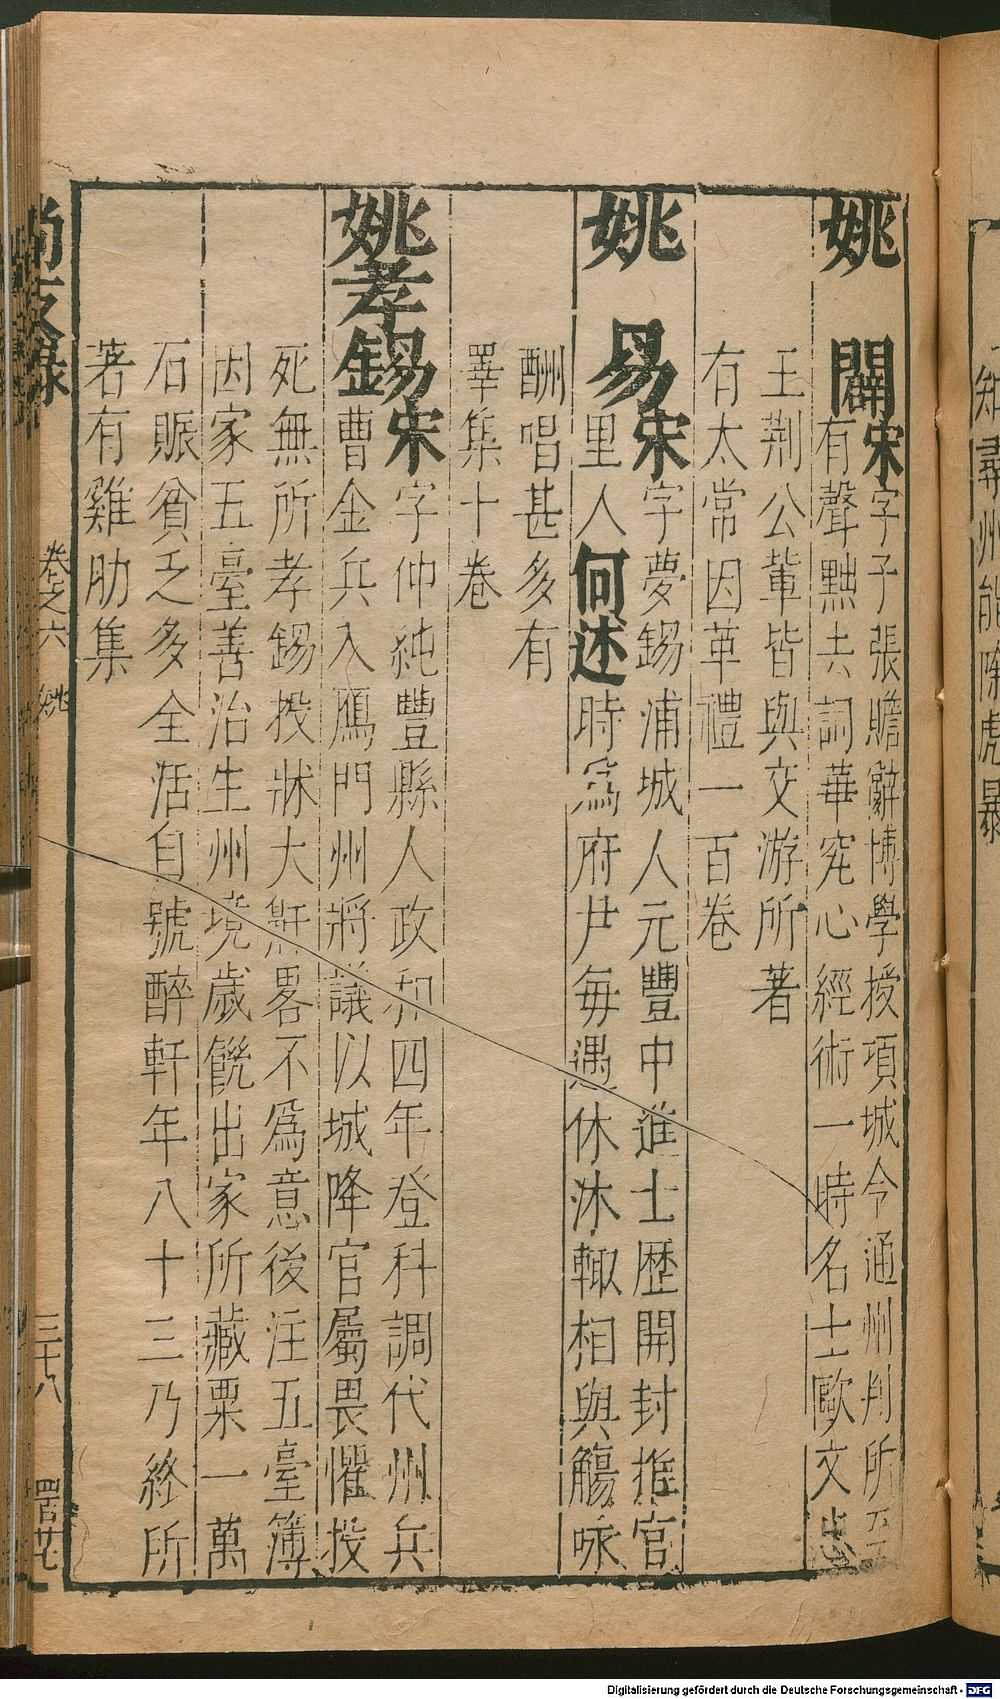 姚　闢宋字子張贍辭博學授項城令通州判所至
有聲黜去詞華究心經術一時名士歐文忠
王荆公輩皆與交游所著
有太常因革禮一百卷
姚　易宋字夢錫浦城人元豐中進士歷開封推官
里人何述時爲府尹每遇休沐輙相與觴咏
酬唱甚多有
睪集十卷
姚孝錫宋字仲純豐縣人政和四年登科調代州兵
曹金兵入鴈門州將議以城降官屬畏懼投
死無所孝錫投牀大鼾畧不爲意後注五臺簿
因家五臺善治生州境歲饑出家所藏粟一萬
石賑貧乏多全活自號醉軒年八十三乃終所
著有雞肋集
尚友錄　卷之六　姚　三十八　四百廿七
知尋州能除虎暴
Digitalisierung gefördert durch die Deutsche Forschungsgemeinschaft - DFG